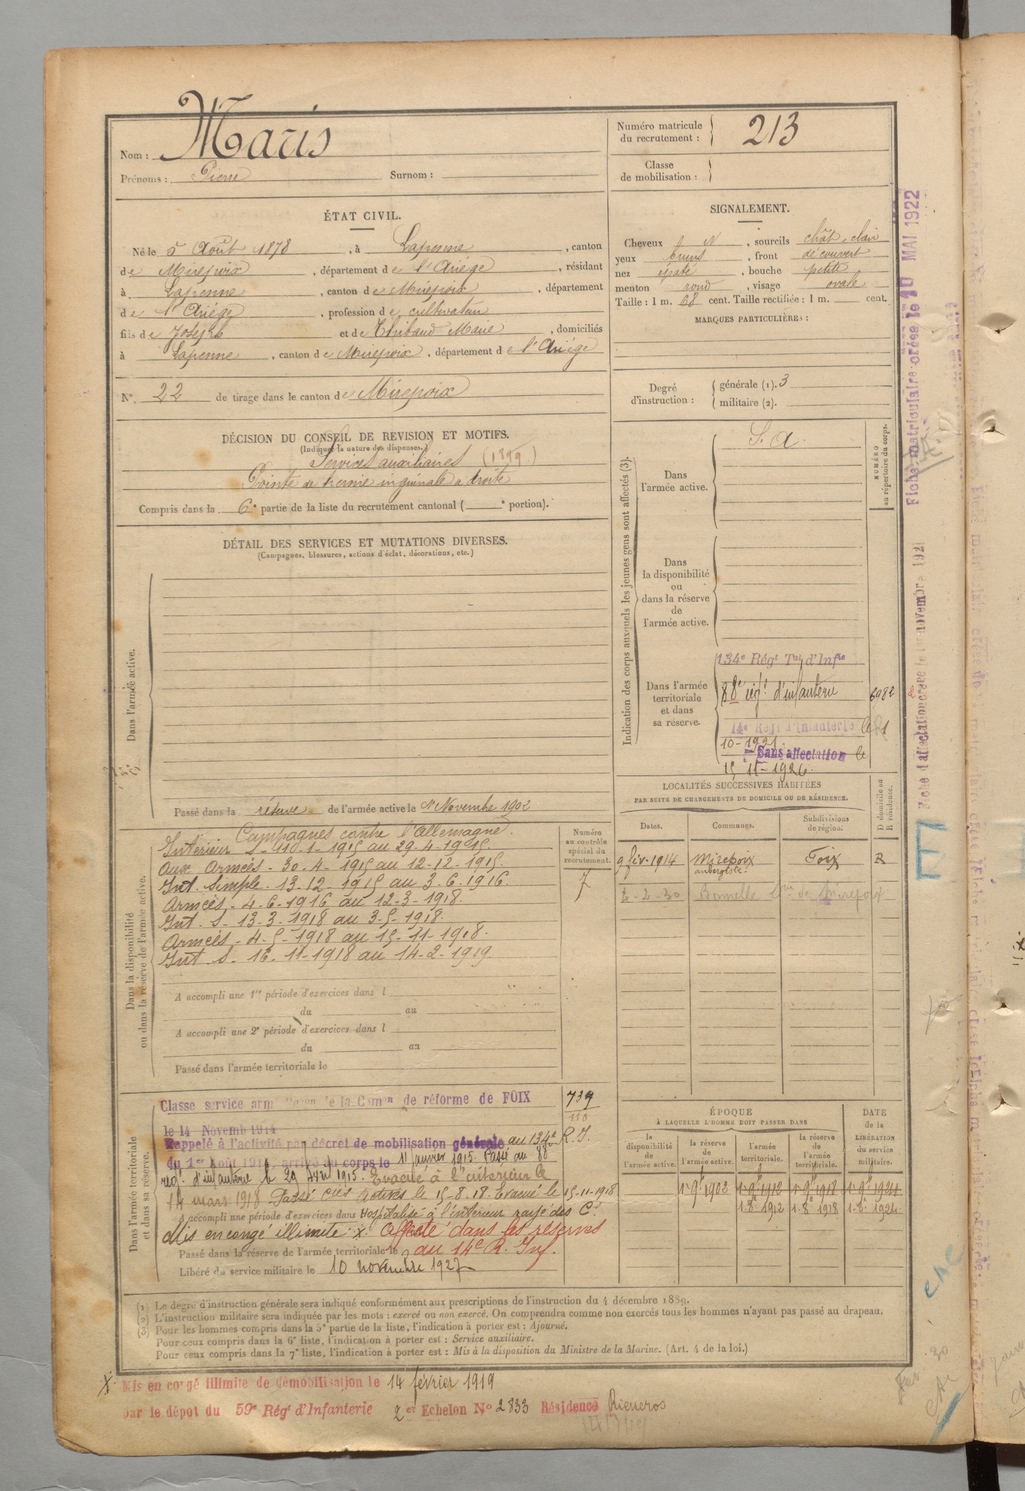 Nom : Maris
Prénoms : Pierre Surnom :
Numéro matricule du recrutement : 213
Classe de mobilisation :
ÉTAT CIVIL.
Né le 5 Août 1878, à Lapenne, canton
de Mirepoix, département de l'Ariège, résidant
à Lapenne, canton de Mirepoix, département
de l'Ariège, profession de cultivateur
fils de Joseph et de Thibaud Marie, domiciliés
à Lapenne, canton de Mirepoix, département de l'Ariège
N° 22 de tirage dans le canton de Mirepoix
SIGNALEMENT.
Cheveux N, sourcils chât. clair
yeux bruns, front découvert
nez épaté, bouche petite
menton rond, visage ovale
Taille : 1 m. 68 cent. Taille rectifiée : 1 m. cent.
MARQUES PARTICULIÈRES :
Degré d'instruction : générale (1). 3
militaire (2).
DÉCISION DU CONSEIL DE REVISION ET MOTIFS.
(Indiquer la nature des dispenses.)
Services auxiliaires (1899)
Pointe de hernie inguinale à droite
Compris dans la 6e partie de la liste du recrutement cantonal ( e portion).
DÉTAIL DES SERVICES ET MUTATIONS DIVERSES.
(Campagnes, blessures, actions d'éclat, décorations, etc.)
Dans l'armée active.
Passé dans la réserve de l'armée active le 1er Novembre 1902
Indication des corps auxquels les jeunes gens sont affectés (3).
NUMÉRO au répertoire du corps.
Dans l'armée active.
S. A.
Dans la disponibilité ou dans la réserve de l'armée active.
Dans l'armée territoriale et dans sa réserve.
134e Régt Tal d'Infie
88e régt d'infanterie 6982
14e Régt d'Infanterie le
10-1921.
Sans affectation le
15-11-1926
LOCALITÉS SUCCESSIVES HABITÉES
PAR SUITE DE CHANGEMENTS DE DOMICILE OU DE RÉSIDENCE.
Dates. Communes. Subdivisions de région. D domicile ou R résidence.
9 fév. 1914 Mirepoix Foix R
aubergiste
2-2-30 de Mirepoix
Dans la disponibilité ou dans la réserve de l'armée active.
Numéro au contrôle spécial du recrutement.
7
Campagnes contre l'Allemagne.
Intérieur S. 11-1-1915 au 29-4-1915.
aux Armées - 30-4-1915 au 12-12-1915.
Int. Simple - 13-12-1915 au 3-6-1916.
Armées - 4-6-1916 au 12-3-1918.
Int. S. 13-3-1918 au 3-5-1918.
Armées - 4-5-1918 au 15-11-1918.
Int. S. 16-11-1918 au 14-2-1919.
A accompli une 1re période d'exercices dans l
du au
A accompli une 2e période d'exercices dans l
du au
Passé dans l'armée territoriale le
Dans l'armée territoriale et dans sa réserve.
739
Classe service armé de la Comon de réforme de FOIX
le 14 Novemb 1914
Rappelé à l'activité par décret de mobilisation générale au 134e R.I.
du 1er Août 1914, arrivé au corps le 11 janvier 1915. Passé au 88e
régt d'infanterie le 29 avril 1915. Evacué à l'intérieur le
14 mars 1918. Passé aux armées le 15-8-18. Evacué le 15-11-1918
A accompli une période d'exercices dans
Hospitalisé à l'intérieur
Mis en congé illimité x. Affecté dans les réserves
Passé dans la réserve de l'armée territoriale le
au 14e R. Inf.
Libéré du service militaire le 10 novembre 1927
ÉPOQUE
À LAQUELLE L'HOMME DOIT PASSER DANS
la disponibilité de l'armée active. la réserve de l'armée active. l'armée territoriale. la réserve de l'armée territoriale.
DATE de la LIBÉRATION du service militaire.
1er 9bre 1902 1er 9bre 1912 1er 9bre 1918 1er 9bre 1924
1.8bre 1912 1.8bre 1918 1.8bre 1924
(1) Le degré d'instruction générale sera indiqué conformément aux prescriptions de l'instruction du 4 décembre 1889.
(2) L'instruction militaire sera indiquée par les mots : exercé ou non exercé. On comprendra comme non exercés tous les hommes n'ayant pas passé au drapeau.
(3) Pour les hommes compris dans la 5e partie de la liste, l'indication à porter est : Ajourné.
Pour ceux compris dans la 6e liste, l'indication à porter est : Service auxiliaire.
Pour ceux compris dans la 7e liste, l'indication à porter est : Mis à la disposition du Ministre de la Marine. (Art. 4 de la loi.)
x Mis en congé illimité de démobilisation le 14 février 1919
par le dépôt du 59e Régt d'Infanterie 2e Echelon N° 2833 Résidence Rieucros
Fiche matriculaire créée le 10 MAI 1922
Fiche d'affectation créée le novembre 1921